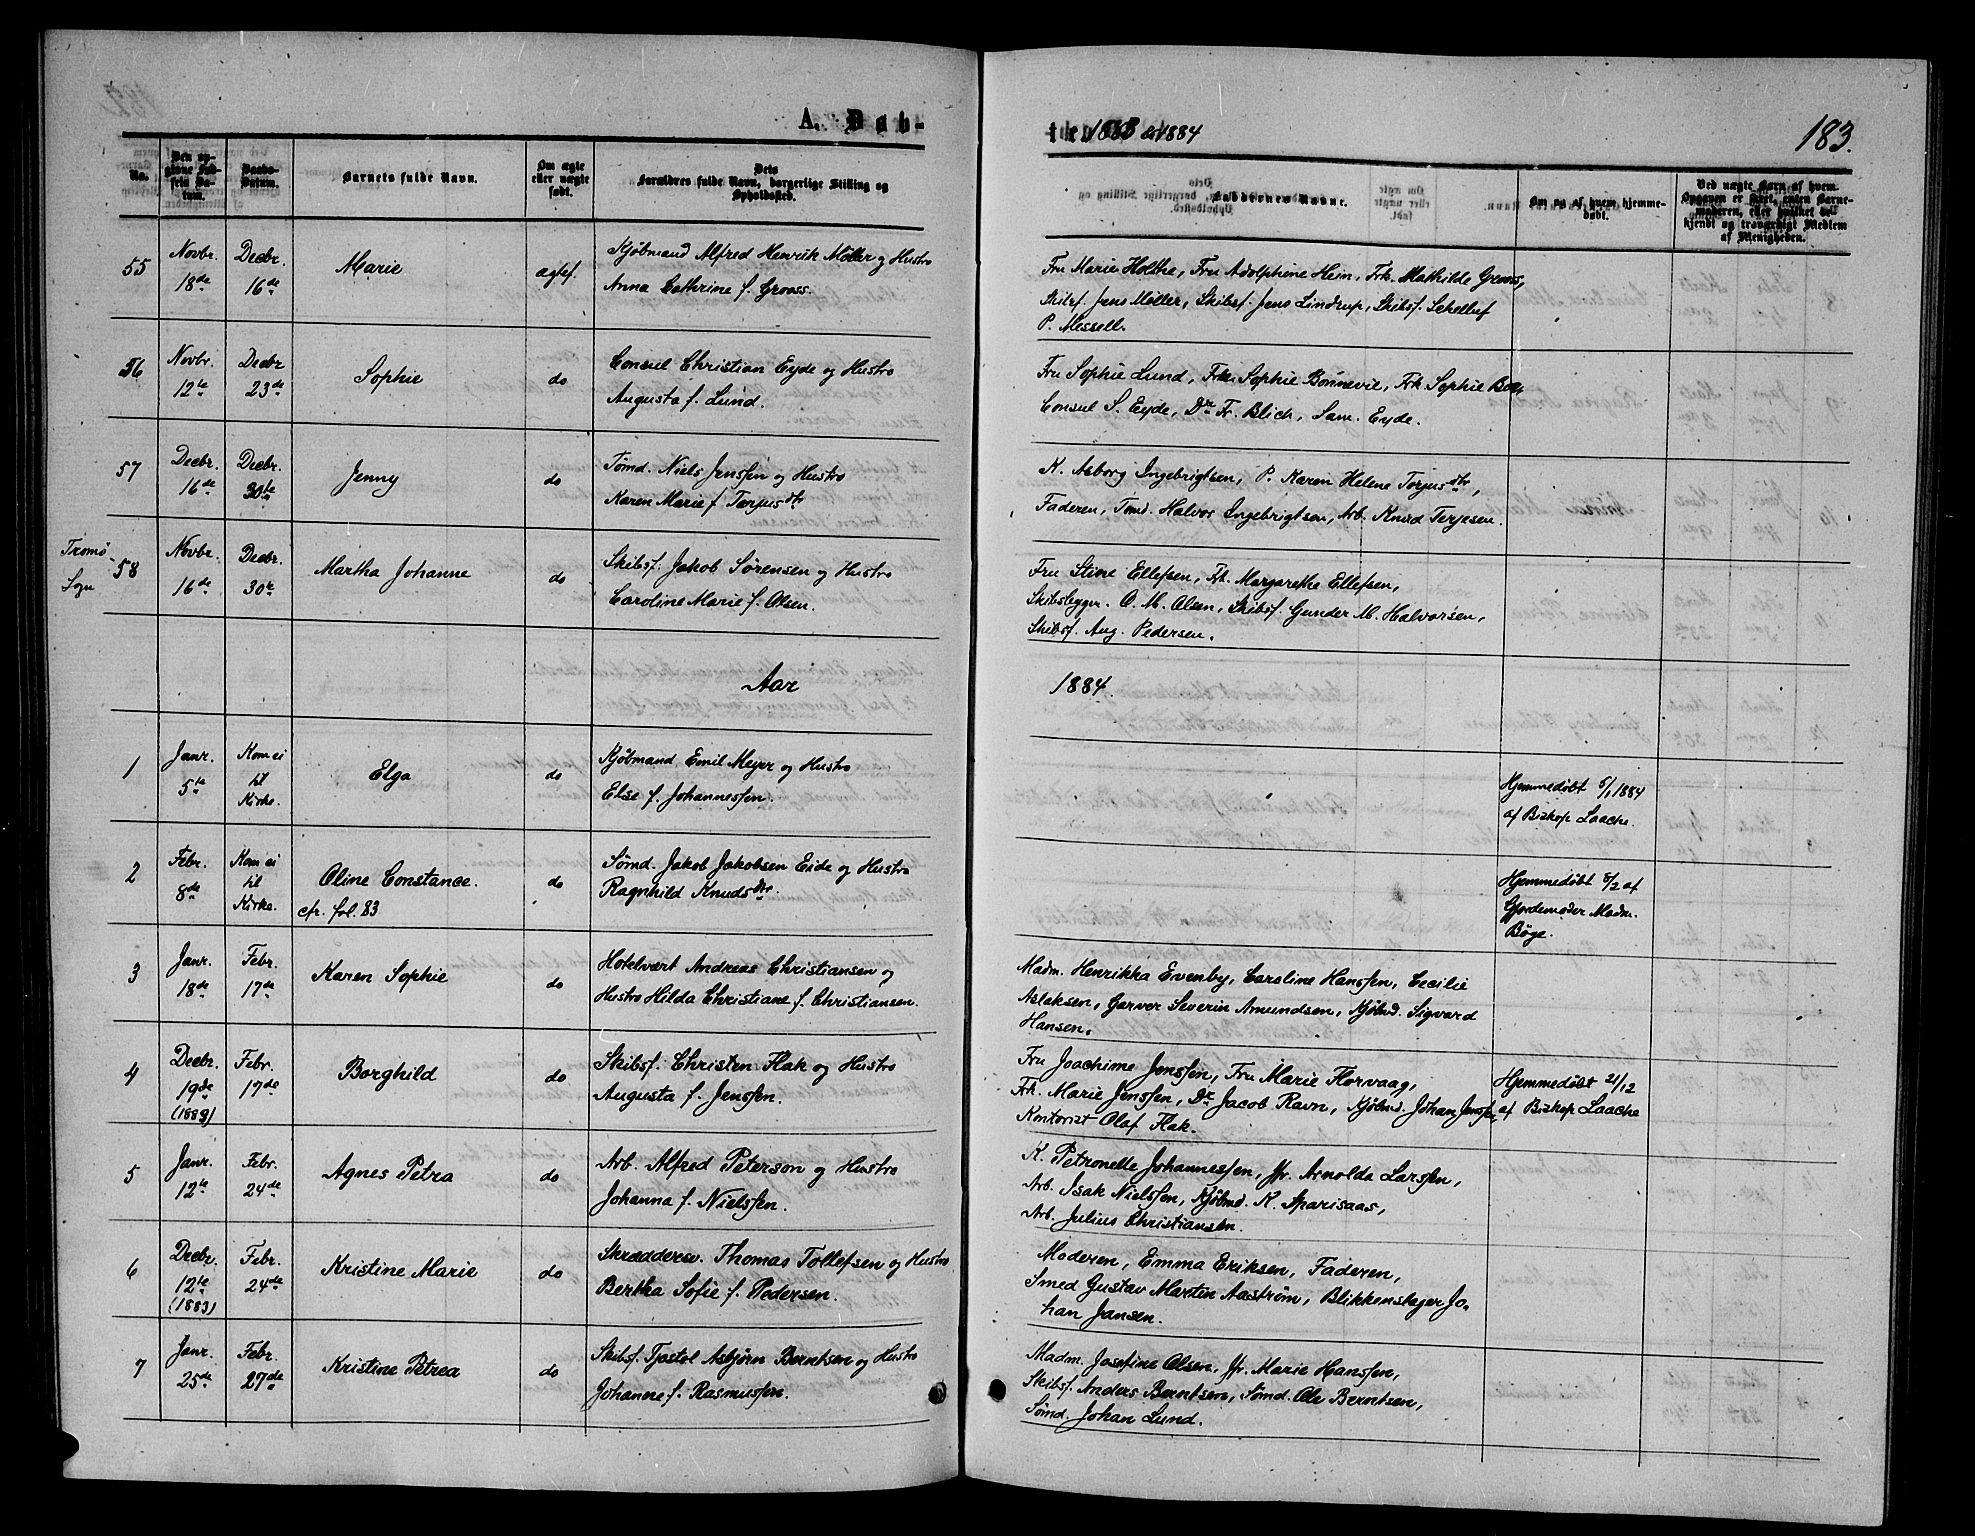 A. Døb-
te 1883 &1884
183.
No.
Den opgivne Fødsels Datum.
Daabs-Datum.
Barnets fulde Navn.
Om ægte eller uægte født.
Dets Forældres fulde Navn, borgerlige Stilling og Opholdssted.
Faddernes Navne.
Om og af hvem hjemmedøbt.
Ved uægte Barn af hvem Opgaven er skeet, enten Barnemoderen, eller hvilket vel kjendt og troværdigt Medlem af Menigheden.
55 Novbr. 18de Decbr. 16de Marie ægtef.
Kjøbmand Alfred Henrik Möller og Hustro
Anna Cathrine f. Grooss.
Fru Marie Holthe, Fru Adolphine Heim, Frk. Mathilde Grooss,
Skibsf. Jens Møller, Skibsf. Jens Lindrup, Skibsf.
P. Messell.
56 Novbr. 12te Decbr 23de Sophie do
Consul Christian Eyde og Hustro
Augusta f. Lund.
Fru Sophie Lund, Frk. Sophie Bonnevie, Frk Sophie
Consul S. Eyde, Dr Fr. Blich, Sam. Eyde.
57 Decbr. 16de Decbr. 30te Jenny do
Tømd. Niels Jenssen og Hustro
Karen Marie f Terjusdtr
K. Asborg Ingebrigtsen, P. Karen Helene Torjusdtr,
Faderen, Tømd. Halvor Ingebrigtsen, Arb. Knud Terjesen.
Tromø Sogn
58 Novbr. 16de Decbr. 30te Martha Johanne do
Skibsf. Jakob Sørensen og Hustro
Caroline Marie f. Olsen.
Fru Stine Ellefsen, Frk. Margarethe Ellefsen,
Skibsbygger. O. M. Olsen, Skibsf. Gunder M. Halvorsen,
Skibsf. Aug. Pedersen.
Aar 1884.
1 Janr. 5te Kom ei til Kirke. Elga do
Kjøbmand Emil Meyer og Hustro
Else f. Johannessen.
Hjemmedøbt 5/1 1884
af Biskop Laache.
2 Febr. 8de Kom ei til Kirke. Oline Constance. do
cfr. fol. 83
Sømd. Jakob Jakobsen Eide og Hustro
Ragnhild Knudsdtr.
Hjemmedøbt 8/2 af
Gjordemoder Madm.
Bøge.
3 Janr. 18de Febr. 17de Karen Sophie do
Hotelvært Andreas Christiansen og
Hustro Hilda Christiane f. Christiansen.
Madm. Henrikka Evenby, Caroline Hanssen, Cecilie
Aslaksen, Garver Severin Amundsen, Kjøbmd. Sigvard
Hansen.
4 Decbr. 19de (1883) Febr. 17de Borghild do
Skibsf. Christen Flak og Hustro
Augusta f. Jenssen.
Fru Joachime Jenssen, Fru Marie Florvaag,
Frk. Marie Jenssen, Dr Jacob Ravn, Kjøbmd. Johan Jenssen,
Kontorist Olaf Flak.
Hjemmedøbt 21/12
af Biskop Laache
5 Janr. 12te Febr. 24de Agnes Petra do
Arb. Alfred Peterson og Hustro
Johanna f. Nielssen.
K. Petronelle Johannessen, Jfr. Arnolda Larssen,
Arb. Isak Nielssen, Kjøbmd. K. Sparisaas,
Arb. Julius Christiansen.
6 Decbr. 12te (1883) Febr. 24de Kristine Marie do
Skræddersv. Thomas Tollefsen og Hustro
Bertha Sofie f. Pedersen.
Moderen, Emma Eriksen, Faderen,
Smed Gustav Martin Aastrøm, Blikkenslager Jo-
han Jansen.
7 Janr. 25de Febr. 27de Kristine Petrea do
Skibsf. Tjostol Asbjørn Berntsen og Hustro
Johanne f. Rasmussen.
Madm. Josefine Olsen, Jfr. Marie Hanssen,
Skibsf. Anders Berntsen, Sømd. Ole Berntsen,
Sømd. Johan Lund.